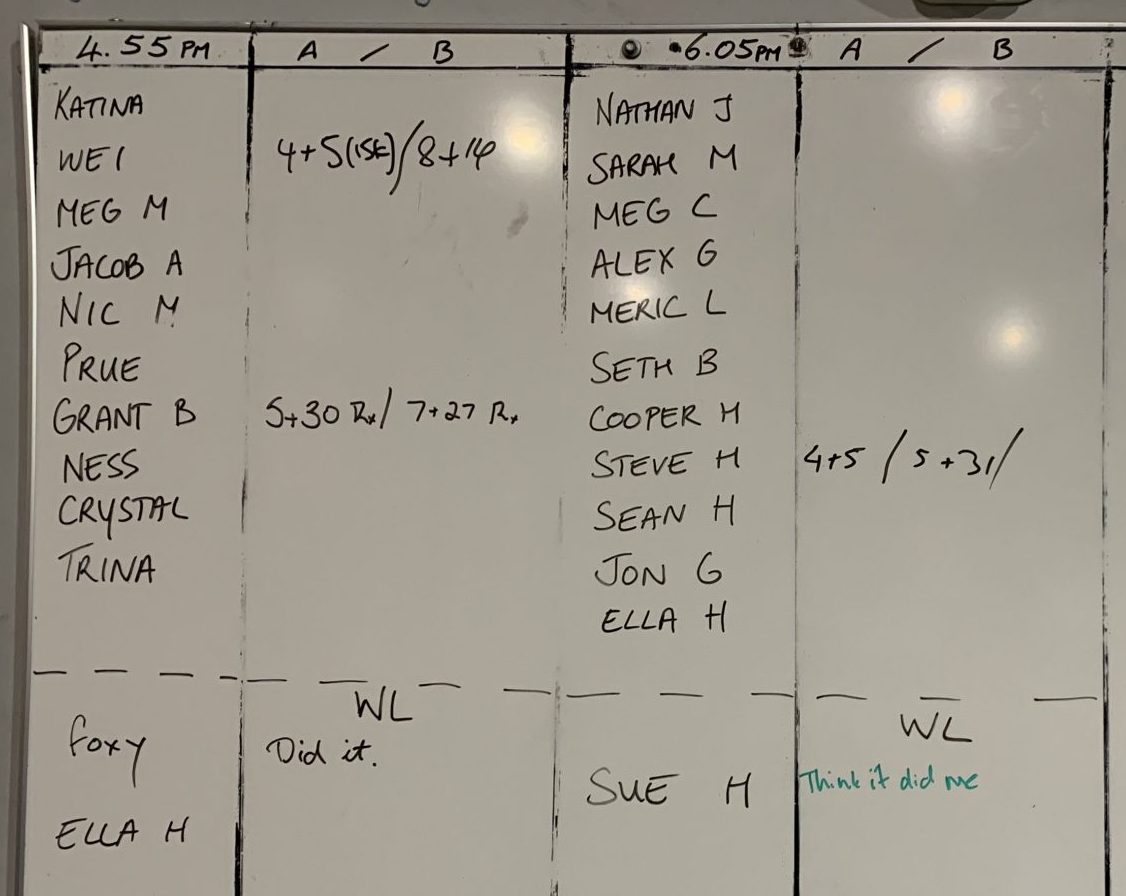 4.55 PM A / B
KATINA
WEI 4+5(15K)/8+14
MEG M
JACOB A
NIC M
PRUE
GRANT B 5+30 Rx/ 7+27 Rx
NESS
CRYSTAL
TRINA
WL
Foxy Did it.
ELLA H
6.05PM A / B
NATHAN J
SARAH M
MEG C
ALEX G
MERIC L
SETH B
COOPER H
STEVE H 4+5 / 5+31/
SEAN H
JON G
ELLA H
WL
SUE H Think it did me